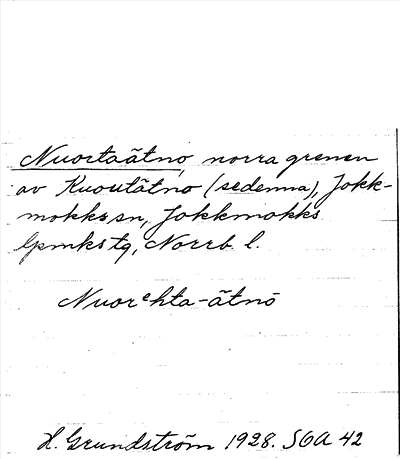 Nuortaätno, norra grenen
av Kuoutätno (sedenna), Jokk-
mokks sn, Jokkmokks
lpmks tg, Norrb. l.
Nuorᵉhta-ätnō
H. Grundström 1928. SOA 42